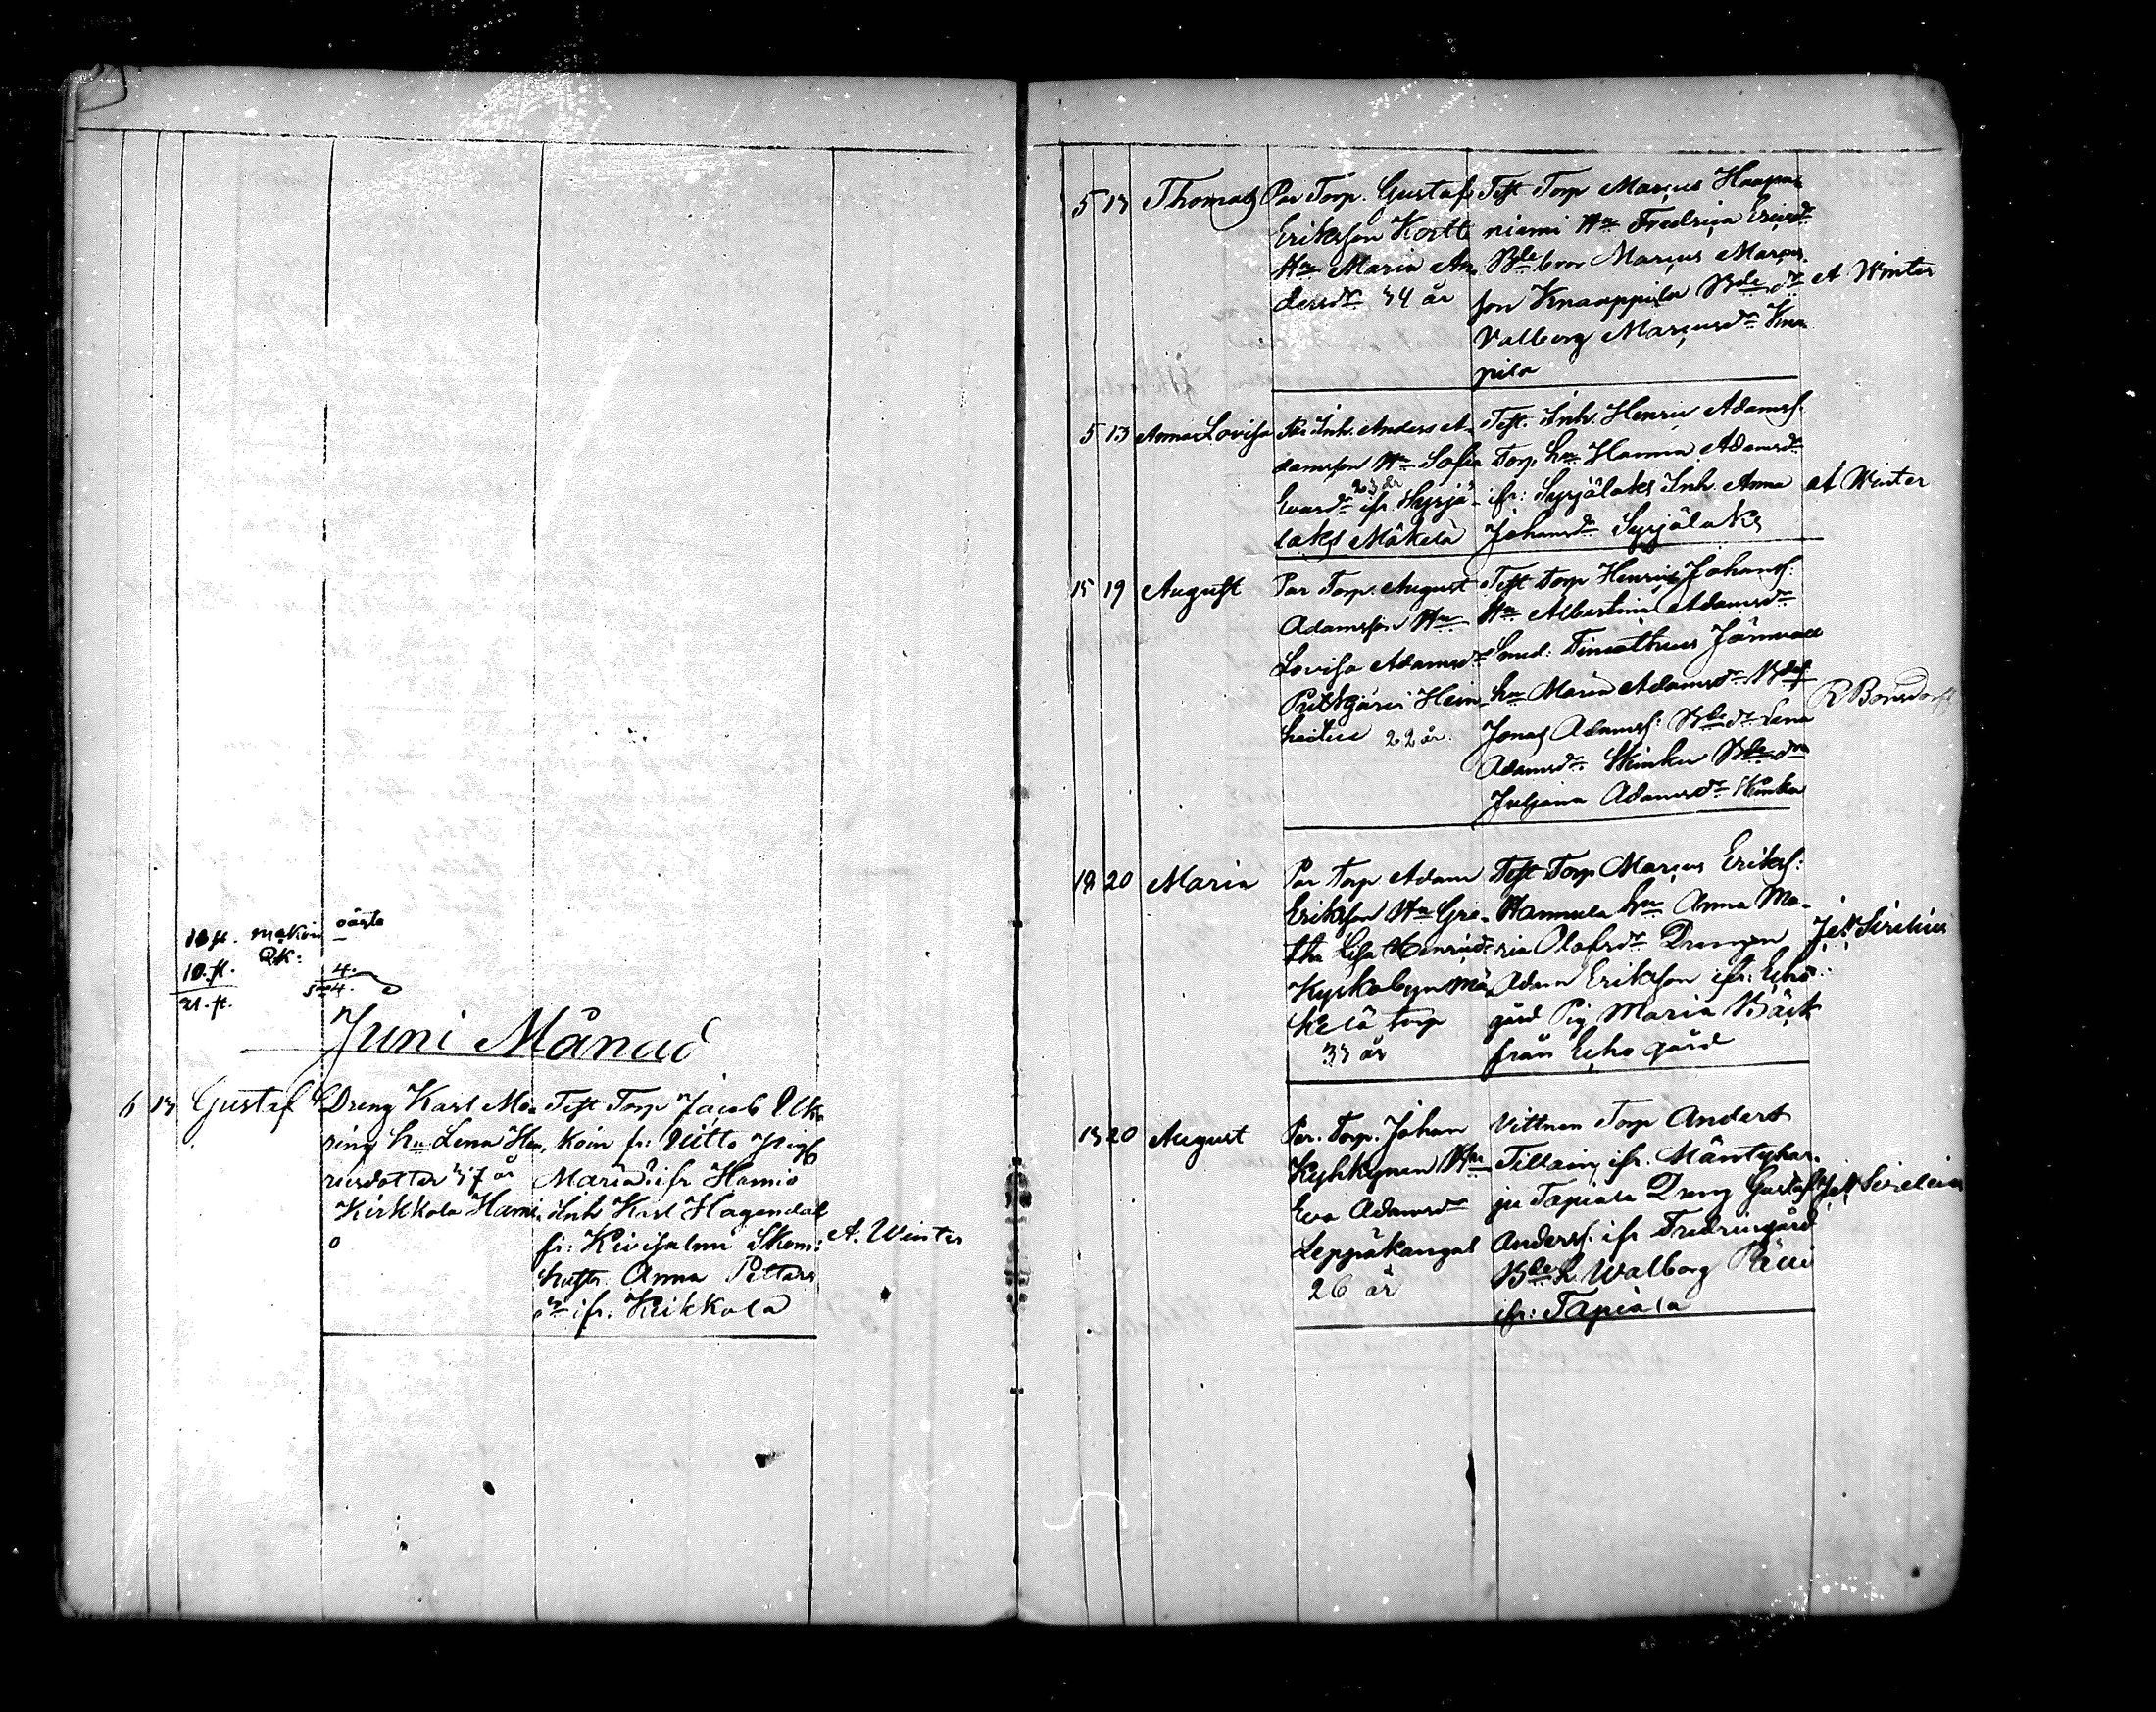 10 ft. makoin oägta
2k:
10. ft. 4.
21. ft. Sm 4.
Juni Månad
6 13 Gustaf
Dreng Karl Mä-
ring hu Lena Hen-
ricsdotter 37 år
Kirkkola Hami
o
Test Torp Jacob Uk
koin fr: Uitto pig
Maria ifr Hamio
Inh Karl Hagendal
fr: Kivijalmi Skom:
hustr. Anna Petters
dr ifr. Kirkkola
A. Winter
5 13 Thomas
Par Torp. Gustaf
Eriksson Kortt
Hu Maria An
dersdr 34 år
Test Torp Marcus Haapa
niemi Hu Fredrica Ericsdr
Bde bror Marcus Marcus
son Knaappila Bde dr
Valborg Marcusdr Knaa
pila
A Winter
5 13 Anna Lovisa
Par Inh. Anders A-
damsson Hu Sofia
23 år
Evasdr ifr Syrjä-
laks Mäkelä
Test. Inh. Henric Adamss.
Torp. hu Hanna Adamsdr
ifr: Syrjälaks Inh. Anna
Johansdr Syrjälaks
A Winter
15 19 August
Par Torp. August
Adamsson Hu
Lovisa Adamsdr
Pitkjärvi Hein
22 år.
Test Torp Henric Johanss:
Hu Albertina Adamsdr
Smed: Timotheus Järnvall
hu Maria Adamsdr Bdes
Jonas Adamss: Bde dr Lena
Adamsdr Skinku Bde dr
Juliana Adamsdr Skinku
R Bonsdorff
18 20 Maria
Par Torp Adam
Eriksson Hu Gre-
tha Lisa Henricsdr
Kyrkobyn Mä
kelä torp
33 år
Test Torp Marcus Erikss:
Hannula hu Anna Ma-
ria Olofsdr Drengen
Adam Eriksson ifr: Echo
gård Pig Maria Bäck
från Echo gård
Jek Sirelius
13 20 August
Par. Torp. Johan
Kyhkynen Hu
Eva Adamsdr
Leppäkangas
26 år
Vittnen Torp Anders
Tillain ifr. Mäntyhar-
ju Tapiala Dreng Gustaf
Anderss. ifr Fredricsgård
Bde h Walborg
ifr: Tapiala
Jek Sirelius